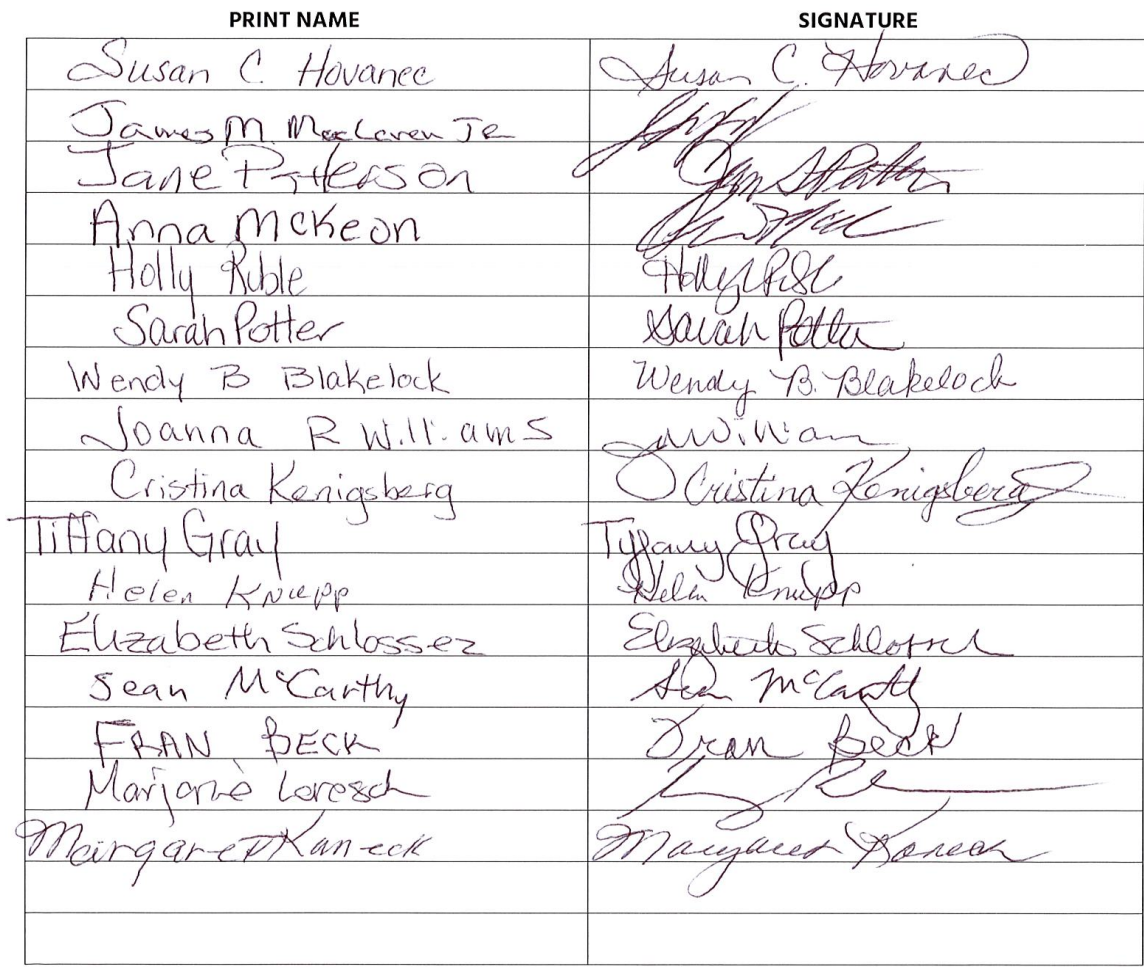 PRINT NAME SIGNATURE
Susan C. Hovanec Susan C. Hovanec
James M. MacLaren Jr
Jane Patterson
Anna McKeon
Holly Ruble Holly
Sarah Potter Sarah Potter
Wendy B Blakelock Wendy B. Blakelock
Joanna R Williams
Cristina Kenigsberg Cristina Kenigsberg
Tiffany Gray Tiffany Gray
Helen Knuepp Helen Knuepp
Elizabeth Schlosser Elizabeth Schlosser
Sean McCarthy Sean McCarthy
FRAN BECK Fran Beck
Marjorie
Margaret Kaneck Margaret